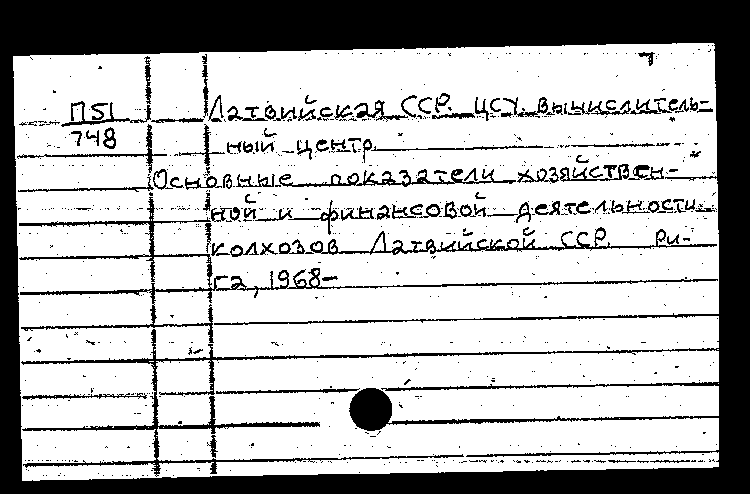 П51 Латвийская ССР. ЦСУ. Вычислитель-
748 ный центр.
Основные показатели хозяйствен-
ной и финансовой деятельности
колхозов Латвийской ССР. Ри-
га, 1968-